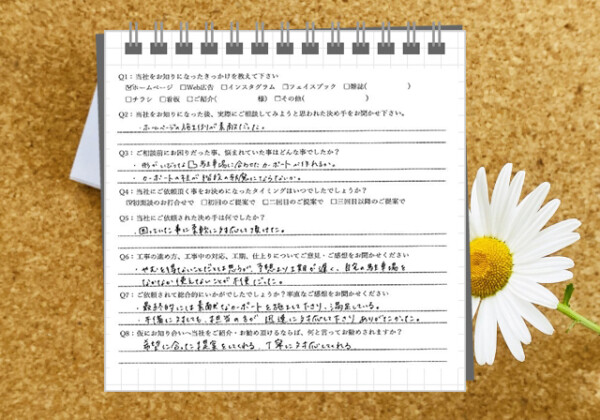 Q1：当社をお知りになったきっかけを教えて下さい
☑ホームページ □Web広告 □インスタグラム □フェイスブック □雑誌( )
□チラシ □看板 □ご紹介( 様) □その他( )
Q2：当社をお知りになった後、実際にご相談してみようと思われた決め手をお聞かせ下さい。
・ホームページの施工例が素敵だった。
Q3：ご相談前にお困りだった事、悩まれていた事はどんな事でしたか？
・形がいびつな駐車場に合わせたカーポートが作れるか。
・カーポートの柱が階段の邪魔にならないか。
Q4：当社にご依頼頂く事をお決めになったタイミングはいつでしたでしょうか？
☑初面談のお打合せで □初回のご提案で □二回目のご提案で □三回目以降のご提案で
Q5：当社にご依頼された決め手は何でしたか？
・困っていた事に柔軟に対応して頂けた。
Q6：工事の進め方、工事中の対応、工期、仕上りについてご意見・ご感想をお聞かせください
・やむを得ないことだとは思うが、予想より工期が遅く、自宅の駐車場を
なかなか使えないことが不便だった。
Q7：ご依頼されて総合的にいかがでしたでしょうか？率直なご感想をお聞かせください
・最終的には素敵なカーポートを施工して下さり、満足している。
・不備に対しても、担当の方が迅速に対応して下さり ありがたかった。
Q8：仮にお知り合いへ当社をご紹介・お勧め頂けるならば、何と言ってお勧めされますか？
希望に合った提案をしてくれる、丁寧に対応してくれる